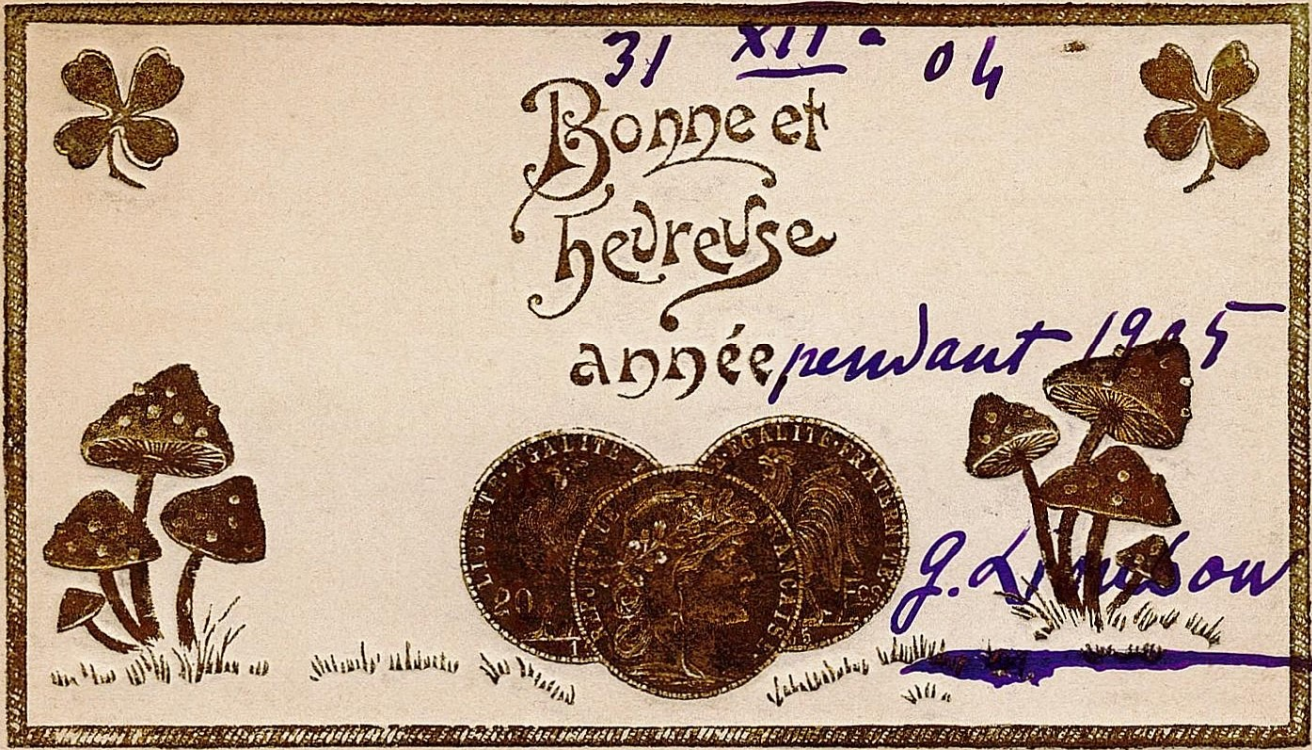 31 XII a 04
Bonne et
heureuse
année pendant 1905
LIBERTE EGALITE
EGALITE FRATERNITE
REPUBLIQUE FRANÇAISE
20
G.